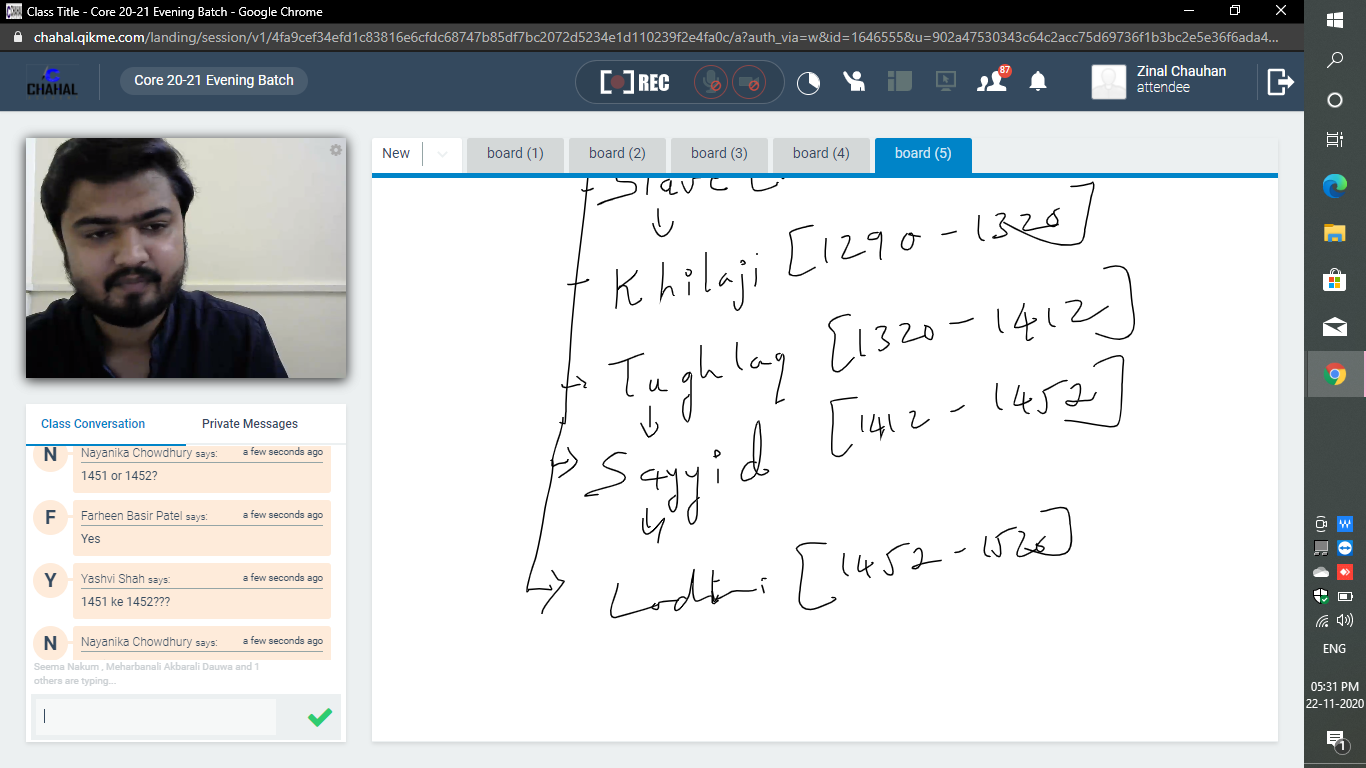 Class Title - Core 20-21 Evening Batch - Google Chrome
chahal.qikme.com/landing/session/v1/4fa9cef34efd1c83816e6cfdc68747b85df7bc2072d5234e1d110239f2e4fa0c/a?auth_via=w&id=1646555&u=902a47530343c64c2acc75d69736f1b3bc2e5e36f6ada4...
CHAHAL
Core 20-21 Evening Batch
REC
87
Zinal Chauhan
attendee
New
board (1)
board (2)
board (3)
board (4)
board (5)
Slave
Khilaji [1290 - 1320]
Tughlaq [1320 - 1412]
Sayyid [1412 - 1452]
[1452 - 1526]
Class Conversation
Private Messages
N
Nayanika Chowdhury says: a few seconds ago
1451 or 1452?
F
Farheen Basir Patel says: a few seconds ago
Yes
Y
Yashvi Shah says: a few seconds ago
1451 ke 1452???
N
Nayanika Chowdhury says: a few seconds ago
Seema Nakum , Meharbanali Akbarali Dauwa and 1
others are typing...
ENG
05:31 PM
22-11-2020
1